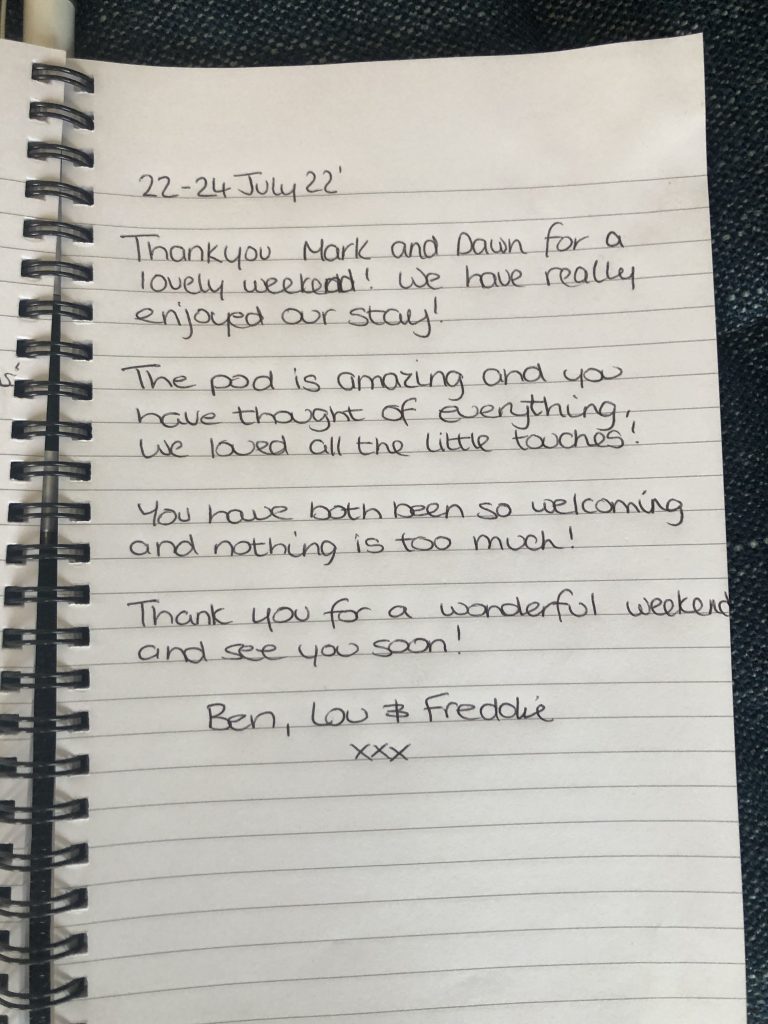 22-24 July 22'
Thankyou Mark and Dawn for a
lovely weekend! We have really
enjoyed our stay!
The pod is amazing and you
have thought of everything,
we loved all the little touches!
You have both been so welcoming
and nothing is too much!
Thank you for a wonderful weekend
and see you soon!
Ben, Lou & Freddie
xxx